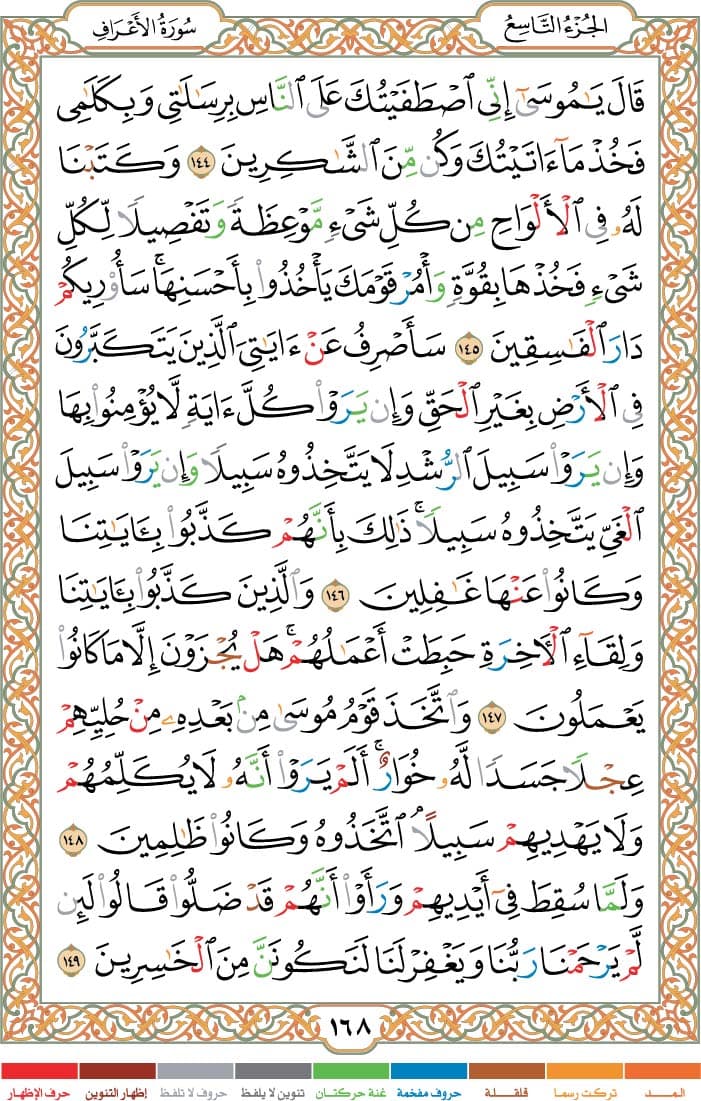 الجزء التاسع
سورة الأعراف
قَالَ يَـٰمُوسَىٰٓ إِنِّى ٱصْطَفَيْتُكَ عَلَى ٱلنَّاسِ بِرِسَـٰلَـٰتِى وَبِكَلَـٰمِى
فَخُذْ مَآ ءَاتَيْتُكَ وَكُن مِّنَ ٱلشَّـٰكِرِينَ ١٤٤ وَكَتَبْنَا
لَهُۥ فِى ٱلْأَلْوَاحِ مِن كُلِّ شَىْءٍ مَّوْعِظَةً وَتَفْصِيلًا لِّكُلِّ
شَىْءٍ فَخُذْهَا بِقُوَّةٍ وَأْمُرْ قَوْمَكَ يَأْخُذُوا۟ بِأَحْسَنِهَا ۚ سَأُو۟رِيكُمْ
دَارَ ٱلْفَـٰسِقِينَ ١٤٥ سَأَصْرِفُ عَنْ ءَايَـٰتِىَ ٱلَّذِينَ يَتَكَبَّرُونَ
فِى ٱلْأَرْضِ بِغَيْرِ ٱلْحَقِّ وَإِن يَرَوْا۟ كُلَّ ءَايَةٍ لَّا يُؤْمِنُوا۟ بِهَا
وَإِن يَرَوْا۟ سَبِيلَ ٱلرُّشْدِ لَا يَتَّخِذُوهُ سَبِيلًا وَإِن يَرَوْا۟ سَبِيلَ
ٱلْغَىِّ يَتَّخِذُوهُ سَبِيلًا ۚ ذَٰلِكَ بِأَنَّهُمْ كَذَّبُوا۟ بِـَٔايَـٰتِنَا
وَكَانُوا۟ عَنْهَا غَـٰفِلِينَ ١٤٦ وَٱلَّذِينَ كَذَّبُوا۟ بِـَٔايَـٰتِنَا
وَلِقَآءِ ٱلْـَٔاخِرَةِ حَبِطَتْ أَعْمَـٰلُهُمْ ۚ هَلْ يُجْزَوْنَ إِلَّا مَا كَانُوا۟
يَعْمَلُونَ ١٤٧ وَٱتَّخَذَ قَوْمُ مُوسَىٰ مِنۢ بَعْدِهِۦ مِنْ حُلِيِّهِمْ
عِجْلًا جَسَدًا لَّهُۥ خُوَارٌ ۚ أَلَمْ يَرَوْا۟ أَنَّهُۥ لَا يُكَلِّمُهُمْ
وَلَا يَهْدِيهِمْ سَبِيلًا ۘ ٱتَّخَذُوهُ وَكَانُوا۟ ظَـٰلِمِينَ ١٤٨
وَلَمَّا سُقِطَ فِىٓ أَيْدِيهِمْ وَرَأَوْا۟ أَنَّهُمْ قَدْ ضَلُّوا۟ قَالُوا۟ لَئِن
لَّمْ يَرْحَمْنَا رَبُّنَا وَيَغْفِرْ لَنَا لَنَكُونَنَّ مِنَ ٱلْخَـٰسِرِينَ ١٤٩
١٦٨
المــــد تركت رسما قلقـــلة حروف مفخمة غنة حركتـان تنوين لا يلفظ حروف لا تلفظ إظهار التنوين حرف الإظهار